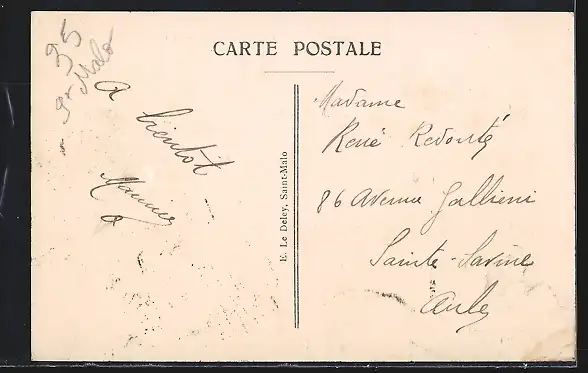 95
St Malo
CARTE POSTALE
A bientôt
Maurice
E. Le Deley, Saint-Malo
Madame
René Redouté
86 Avenue Gallieni
Sainte-Savine
Aube